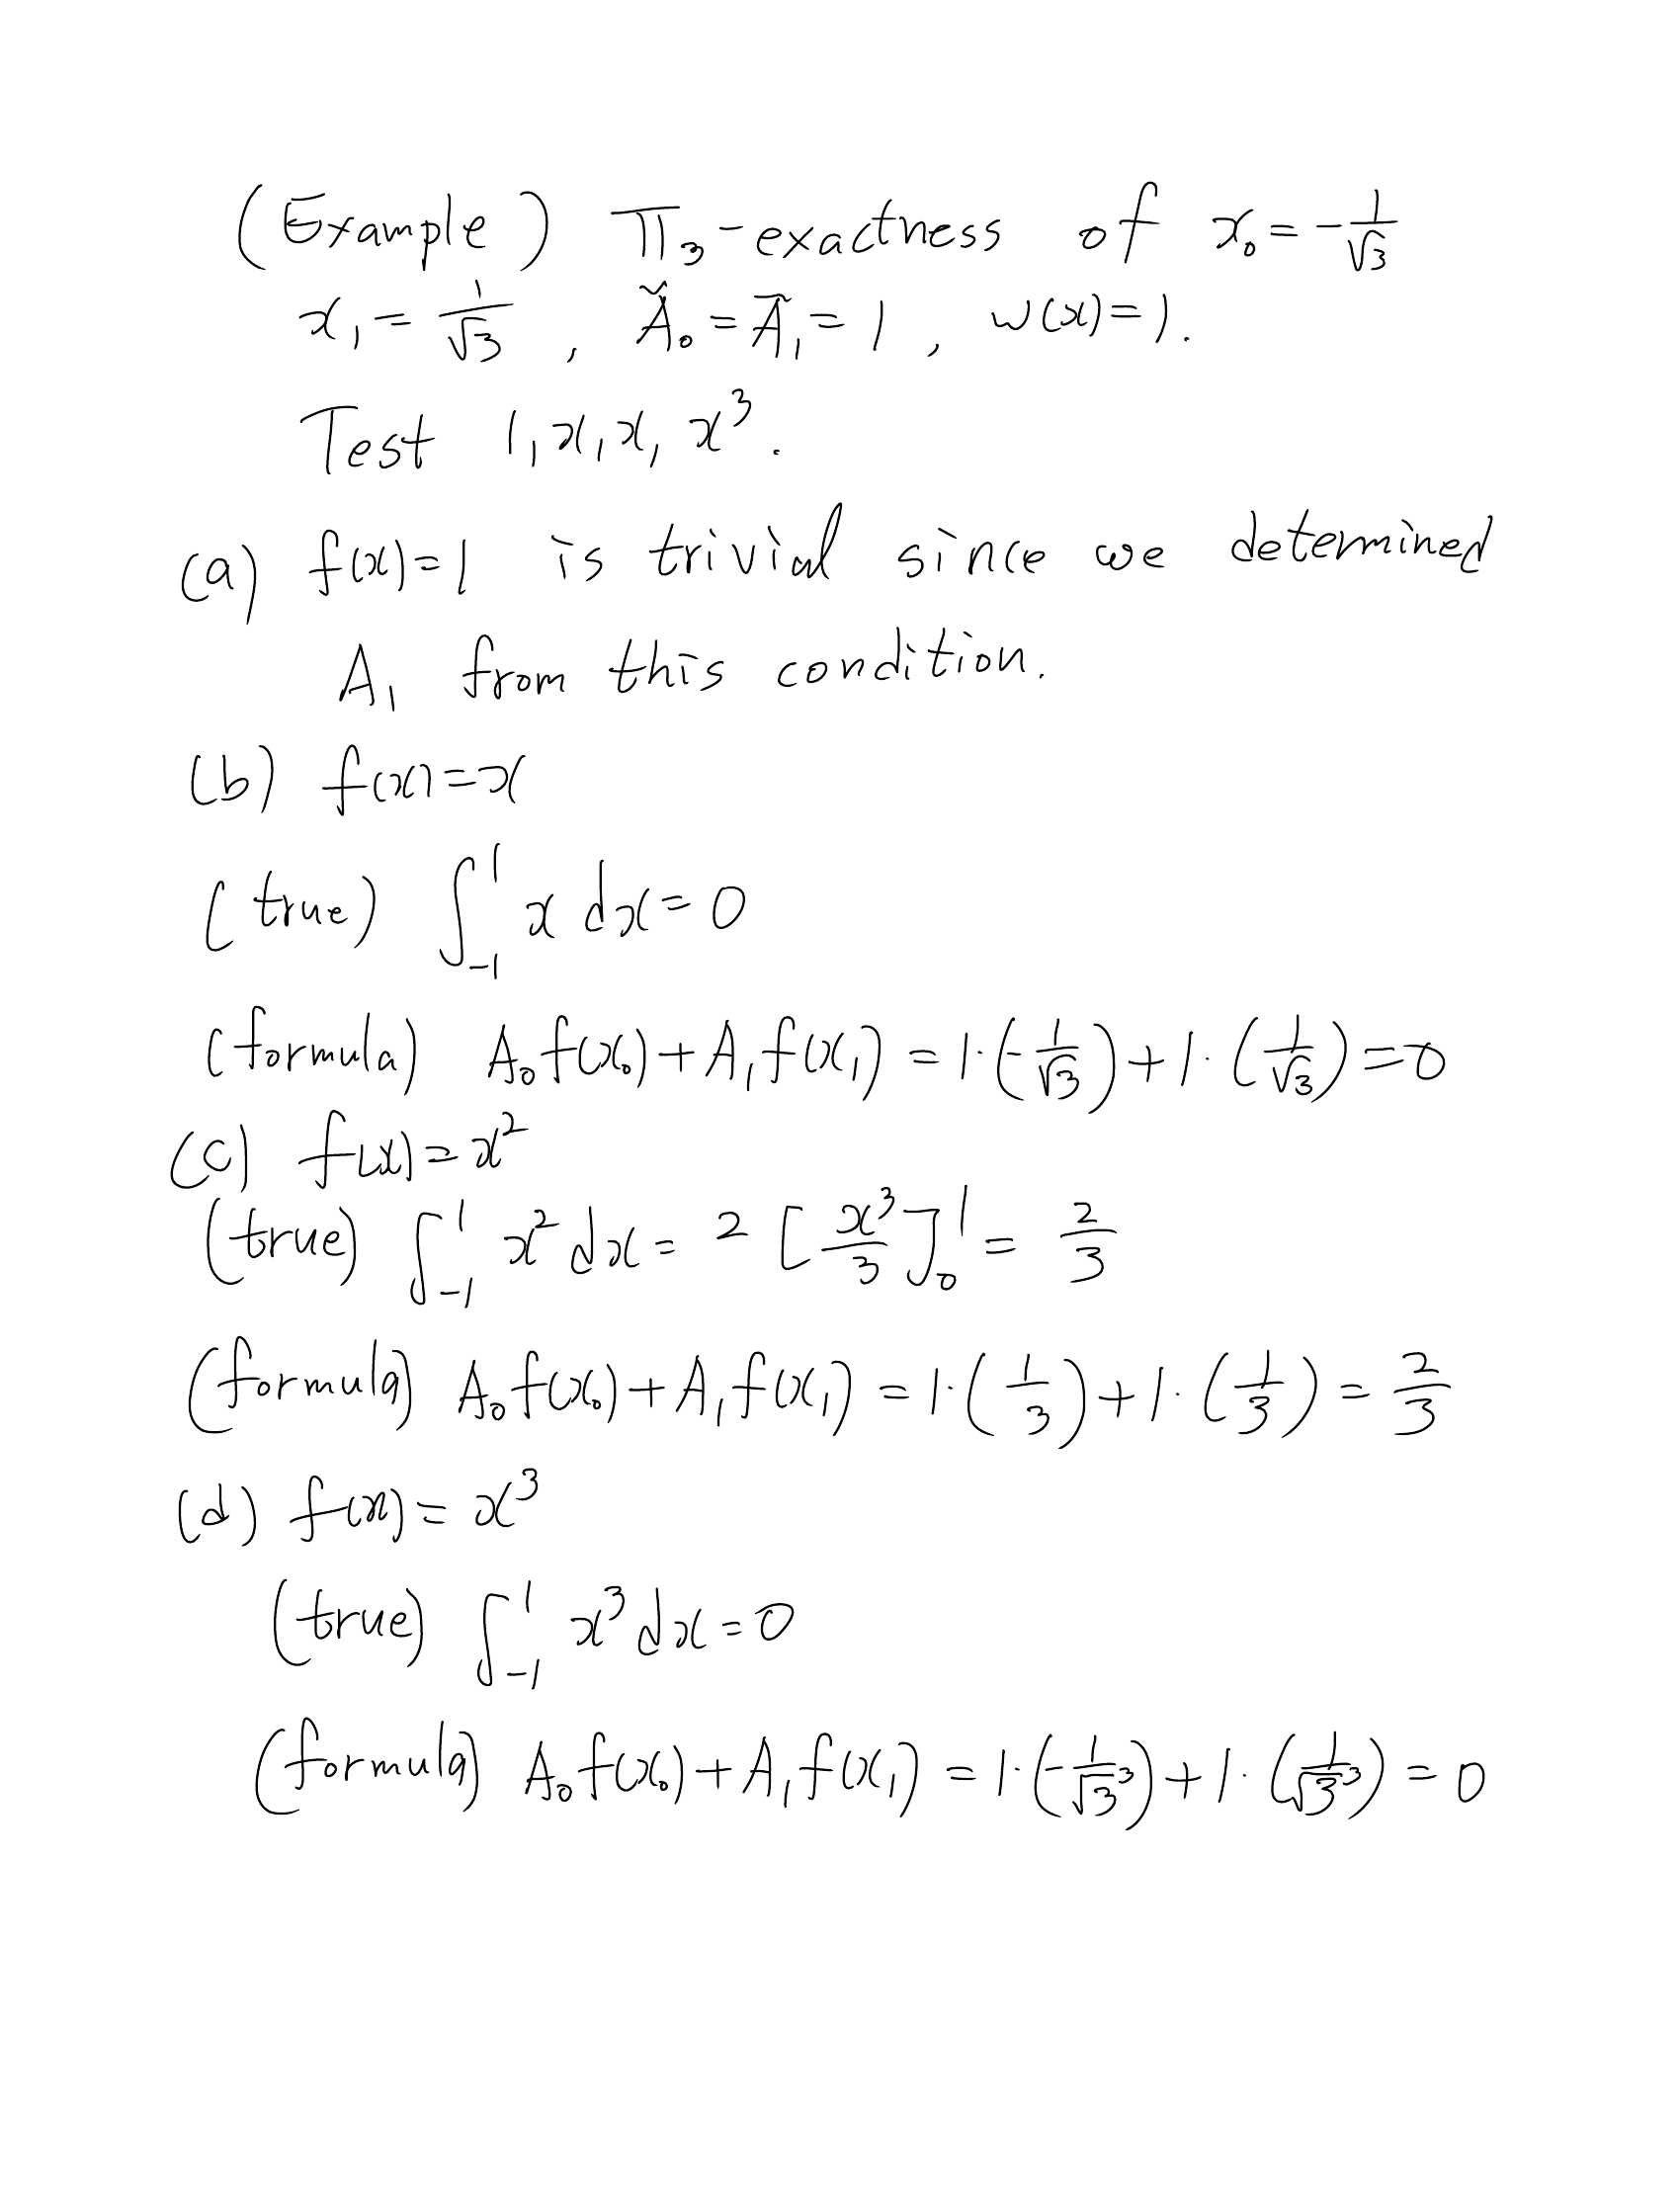 (Example) Π₃-exactness of x₀ = -1/√3
x₁ = 1/√3 , Ã₀ = Ã₁ = 1 , w(x) = 1.
Test 1, x, x, x³.
(a) f(x) = 1 is trivial since we determined
A₁ from this condition.
(b) f(x) = x
(true) ∫₋₁¹ x dx = 0
(formula) A₀f(x₀) + A₁f(x₁) = 1·(-1/√3) + 1·(1/√3) = 0
(c) f(x) = x²
(true) ∫₋₁¹ x² dx = 2 [x³/3]₀¹ = 2/3
(formula) A₀f(x₀) + A₁f(x₁) = 1·(1/3) + 1·(1/3) = 2/3
(d) f(x) = x³
(true) ∫₋₁¹ x³ dx = 0
(formula) A₀f(x₀) + A₁f(x₁) = 1·(-1/√3³) + 1·(1/√3³) = 0